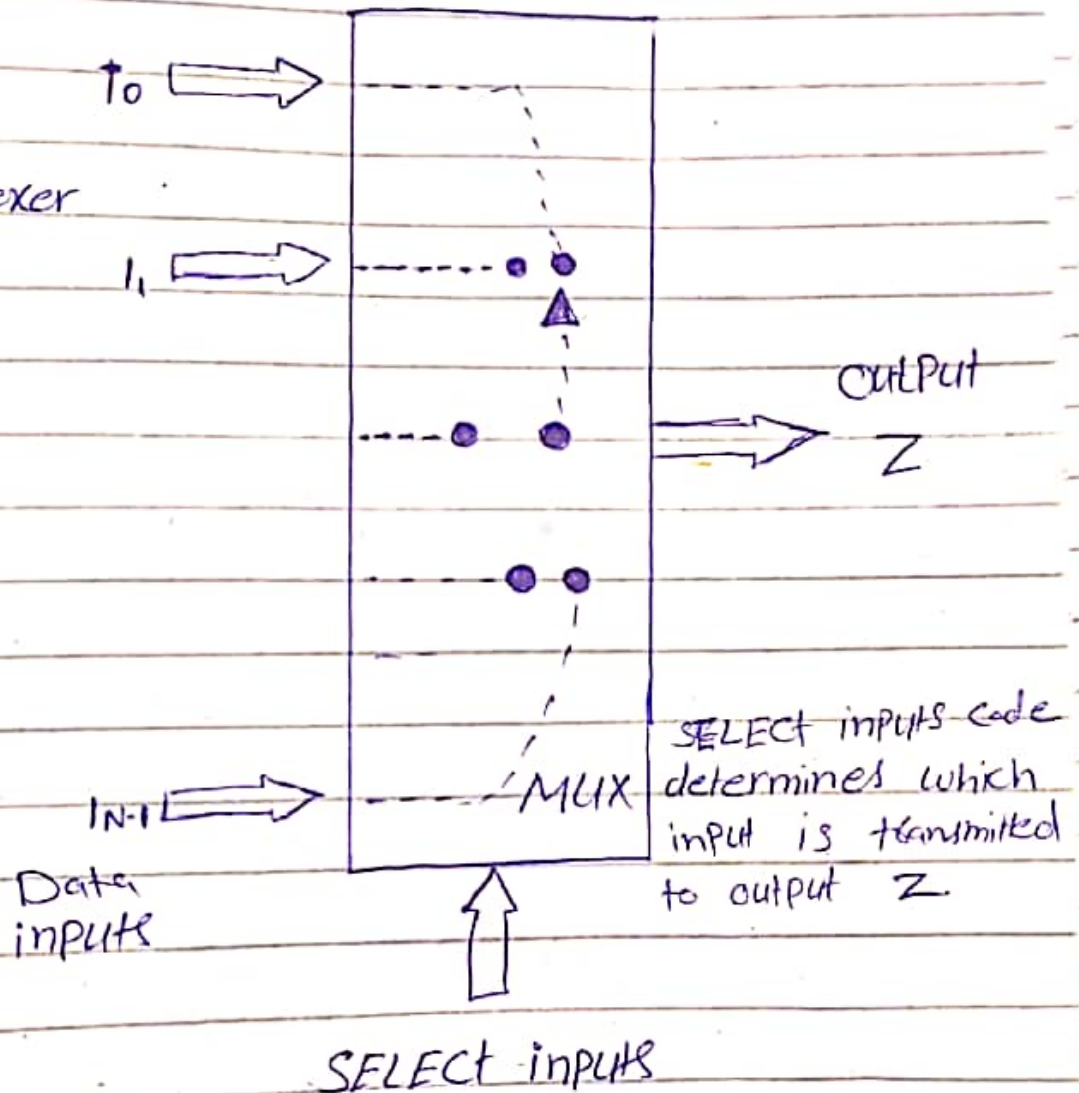 I0
exer
I1
OUTPUT
Z
SELECT inputs code
determines which
input is transmitted
to output Z.
MUX
IN-1
Data
inputs
SELECT inputs